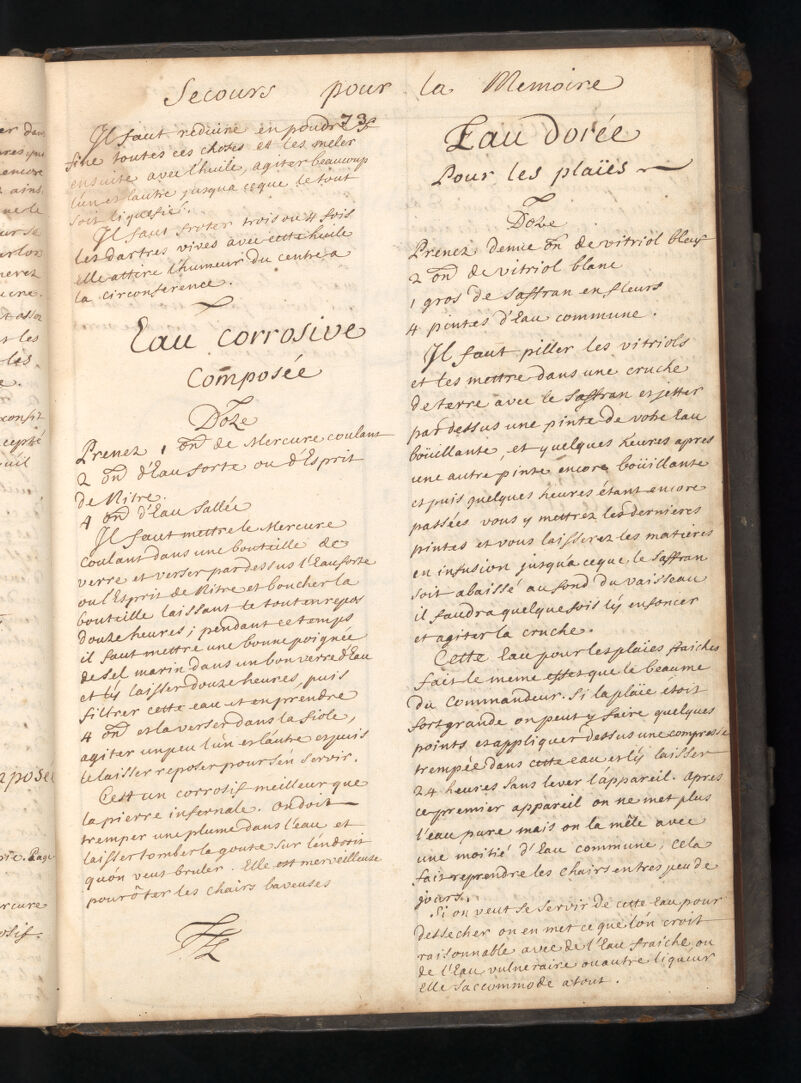 Secours pour la Memoire
73
Il faut reduire en poudre
fine toutes ces choses et les mêler
ensuite avec l'huile, agiter beaucoup
l'un et l'autre jusqu'a ceque le tout
soit liquefié.
Il faut froter trois ou 4 fois
les dartres vives avec cette huile
elle attire l'humeur du centre a
la circonference.
Eau corrosive
Composée
Doze
Prenez 1 on de Mercure coulant
2 on d'Eau forte ou d'Esprit
de Nitre.
4 on d'Eau Sallée
Il faut mettre le Mercure
coulant dans une bouteille de
verre et verser par dessus l'Eau forte
ou l'Esprit de Nitre et boucher la
bouteille laissant le tout en repos
douze heures; pendant ce temps
il faut mettre une bonne poignée
de sel marin dans un bon verre d'Eau
et l'y laisser douze heures, puis
filtrer cette eau et en prendre
4 on et la verser dans la fiole,
agiter un peu l'un et l'autre et puis
le laisser reposer pour s'en servir.
C'est un corrosif meilleur que
la pierre infernale. on doit
tremper une plume dans l'eau et
laisser tomber la goute sur l'endroit
qu'on veus bruler. Elle est merveilleuse
pour ôter les chairs baveuses
Eau dorée
Pour les plaïes
Doze
Prenez demie on de vitriol bleuf
2 on de vitriol blanc
1 gros de Saffran en fleurs
4 pintes d'Eau commune.
Il faut piller les vitriols
et les mettre dans une cruche
de terre avec le Saffran et jetter
par dessus une pinte de votre Eau
boüillante, et quelques heures apres
une autre pinte encore boüillante
et puis quelques heures étant encore
passées vous y mettrez les dernieres
pintes et vous laisserez les matieres
en infusion jusqu'a ceque le Saffran
soit abaissé au fond du vaisseau
il faudra quelque fois l'y enfoncer
et agiter la cruche.
Cette Eau pour les plaïes fraiches
fait le meme effet que le beaume
du Commandeur. Si la plaïe étoit
fort grande on peut y faire quelques
points et appliquer dessus une compresse
trempée dans cette eau et l'y laisser
24 heures sans lever l'appareil. apres
ce premier appareil on ne met plus
l'eau pure mais on la mêle avec
une moitié d'Eau commune, Cela
fait reprendre les chairs en tres peu de
jours.
Si on veut se servir de cette Eau pour
dessecher on en met ce que l'on croit
raisonnable avec de l'Eau fraiche, ou
de l'Eau vulneraire ou autre liqueur
Elle s'accommode a tout.